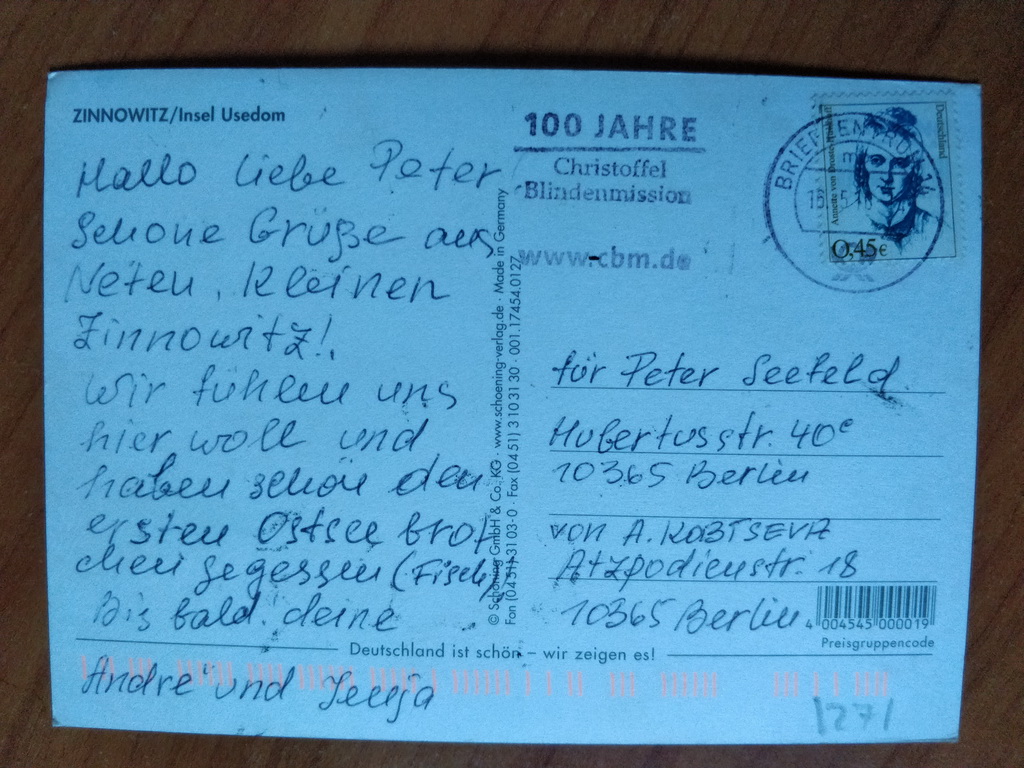 ZINNOWITZ/Insel Usedom
Hallo liebe Peter
Schöne Grüße aus
Neten, kleinen
Zinnowitz!
Wir fühlen uns
hier woll und
haben schön den
ersten Ostsee bröt
chen gegessen (Fisch)
Bis bald. deine
Andre und Jenja
100 JAHRE
Christoffel
Blindenmission
www.cbm.de
BRIEFZENTRUM
Deutschland
Annette von Droste-Hülshoff
0,45€
© Schöning GmbH & Co. KG · www.schoening-verlag.de · Made in Germany
Fon (0451) 31 03-0 · Fax (0451) 310 31 30 · 001.17454.0127
für Peter Seefeld
Hubertusstr. 40c
10365 Berlin
von A. KOBTSEVA
Atzpodienstr. 18
10365 Berlin
4 004545 000019
Preisgruppencode
Deutschland ist schön – wir zeigen es!
1271